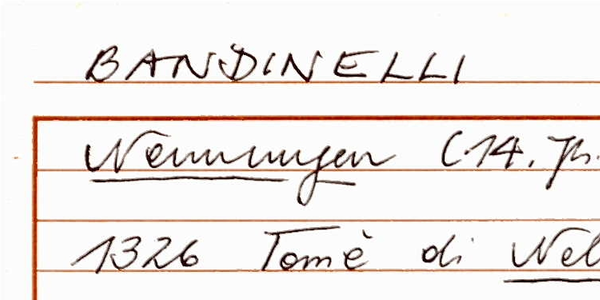 BANDINELLI
Nennungen (14. Jh.
1326 Tomè di Nel